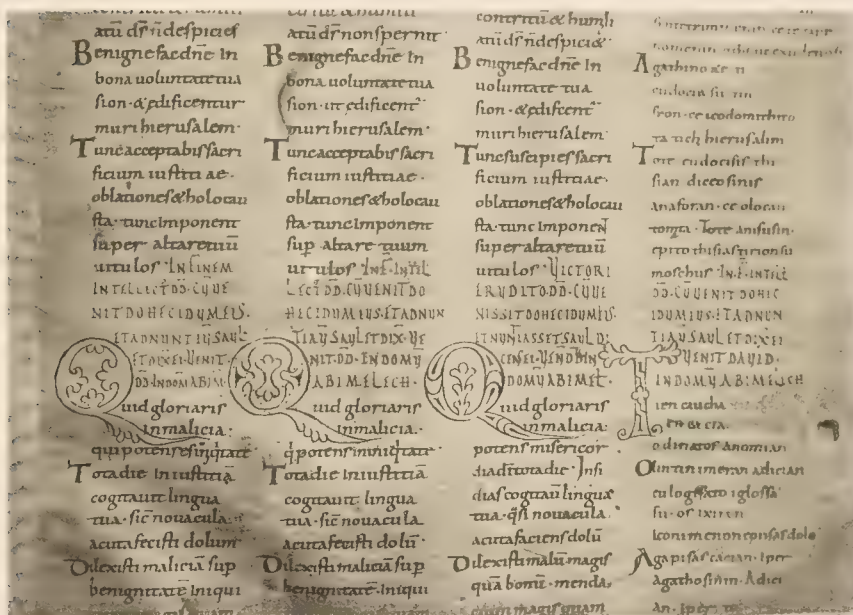 atū dr̄ n̄ despicies
Benigne fac dn̄e In
bona uoluntate tua
sion · & edificentur
muri hierusalem ·
Tunc acceptabis sacri
ficium iustitiae ·
oblationes & holocau
sta · tunc Imponent
super altare tuū
uitulos · IN FINEM
INTELLECT̄ DD̄ · CŪ UE
NIT DOHEC IDUMEUS ·
ET ADNUNTIŪ SAUL̄
ET DIX̄ EI · UENIT ·
DD̄ · IN DOMŪ ABIM̄
Quid gloriaris
in malicia ·
qui potens es iniq̄tate ·
Tota die In iustitiā
cogitauit lingua
tua · sic̄ nouacula ·
acuta fecisti dolum
Dilexisti maliciā sup̄
benignitatē · Iniqui
atū dr̄ non spernit ·
Benigne fac dn̄e In
bona uoluntate tua
sion · ut edificent̄
muri hierusalem ·
Tunc acceptabis sacri
ficium iustitiae ·
oblationes & holocau
sta · tunc Imponent
sup̄ altare tuum
uitulos · IN F̄ · INTEL̄
LECT̄ DD̄ · CŪ UENIT DO
HEC IDUMEUS · ET ADNUN
TIAŪ SAUL ET DIX̄ · UE
NIT · DD̄ · IN DOMŪ
ABIMELECH ·
Quid gloriaris
in malicia ·
q̄ potens in iniq̄tate ·
Tota die In iustitiā
cogitauit lingua
tua · sic̄ nouacula
acuta fecisti dolū ·
Dilexisti maliciā sup̄
benignitatē · Iniqui
contritū & humili
atū dr̄ n̄ despicies
Benigne fac dn̄e In
uoluntate tua
sion · & edificent̄
muri hierusalem ·
Tunc suscipies sacri
ficium iustitiae ·
oblationes & holocau
sta · tunc Imponen̄
super altare tuū
uitulos · UICTORI
ERUDITO · DD̄ · CŪ UE
NISSIT DOHEC IDUMEUS ·
ET NUNTIASSET SAUL DI
CENS EI · UEN̄ DD̄ IN
DOMŪ ABIMEL̄ ·
Quid gloriaris
in malicia ·
potens misericor
dia dī tota die · Insi
dias cogitaū lingua
tua · q̄si nouacula
acuta faciens dolū
Dilexisti malū magis
quā bonū · menda
cium magis quam
Agathino
eudocia su
sron · ce icodomithito
ta tich hierusalim
Tote eudocisis thi
sian diceosinis
anaforan · ce olocau
tomta · Tote anisusin ·
epi to thisiastirion su
moschus IN F̄ · INTELL̄
DD̄ · CŪ UENIT DOHEC
IDUMEUS · ET ADNUN
TIAŪ SAUL ET DIX̄ EI
UENIT DAUID ·
IN DOMŪ ABIMELECH
Tien caucha
en
o dinatos Anomian
Olin tin imeran adician
elogisato i glossa
su · os ixiron
Iconimenon epiisas dolo
Agapisas cacian · Iper
agathosinin · Adici